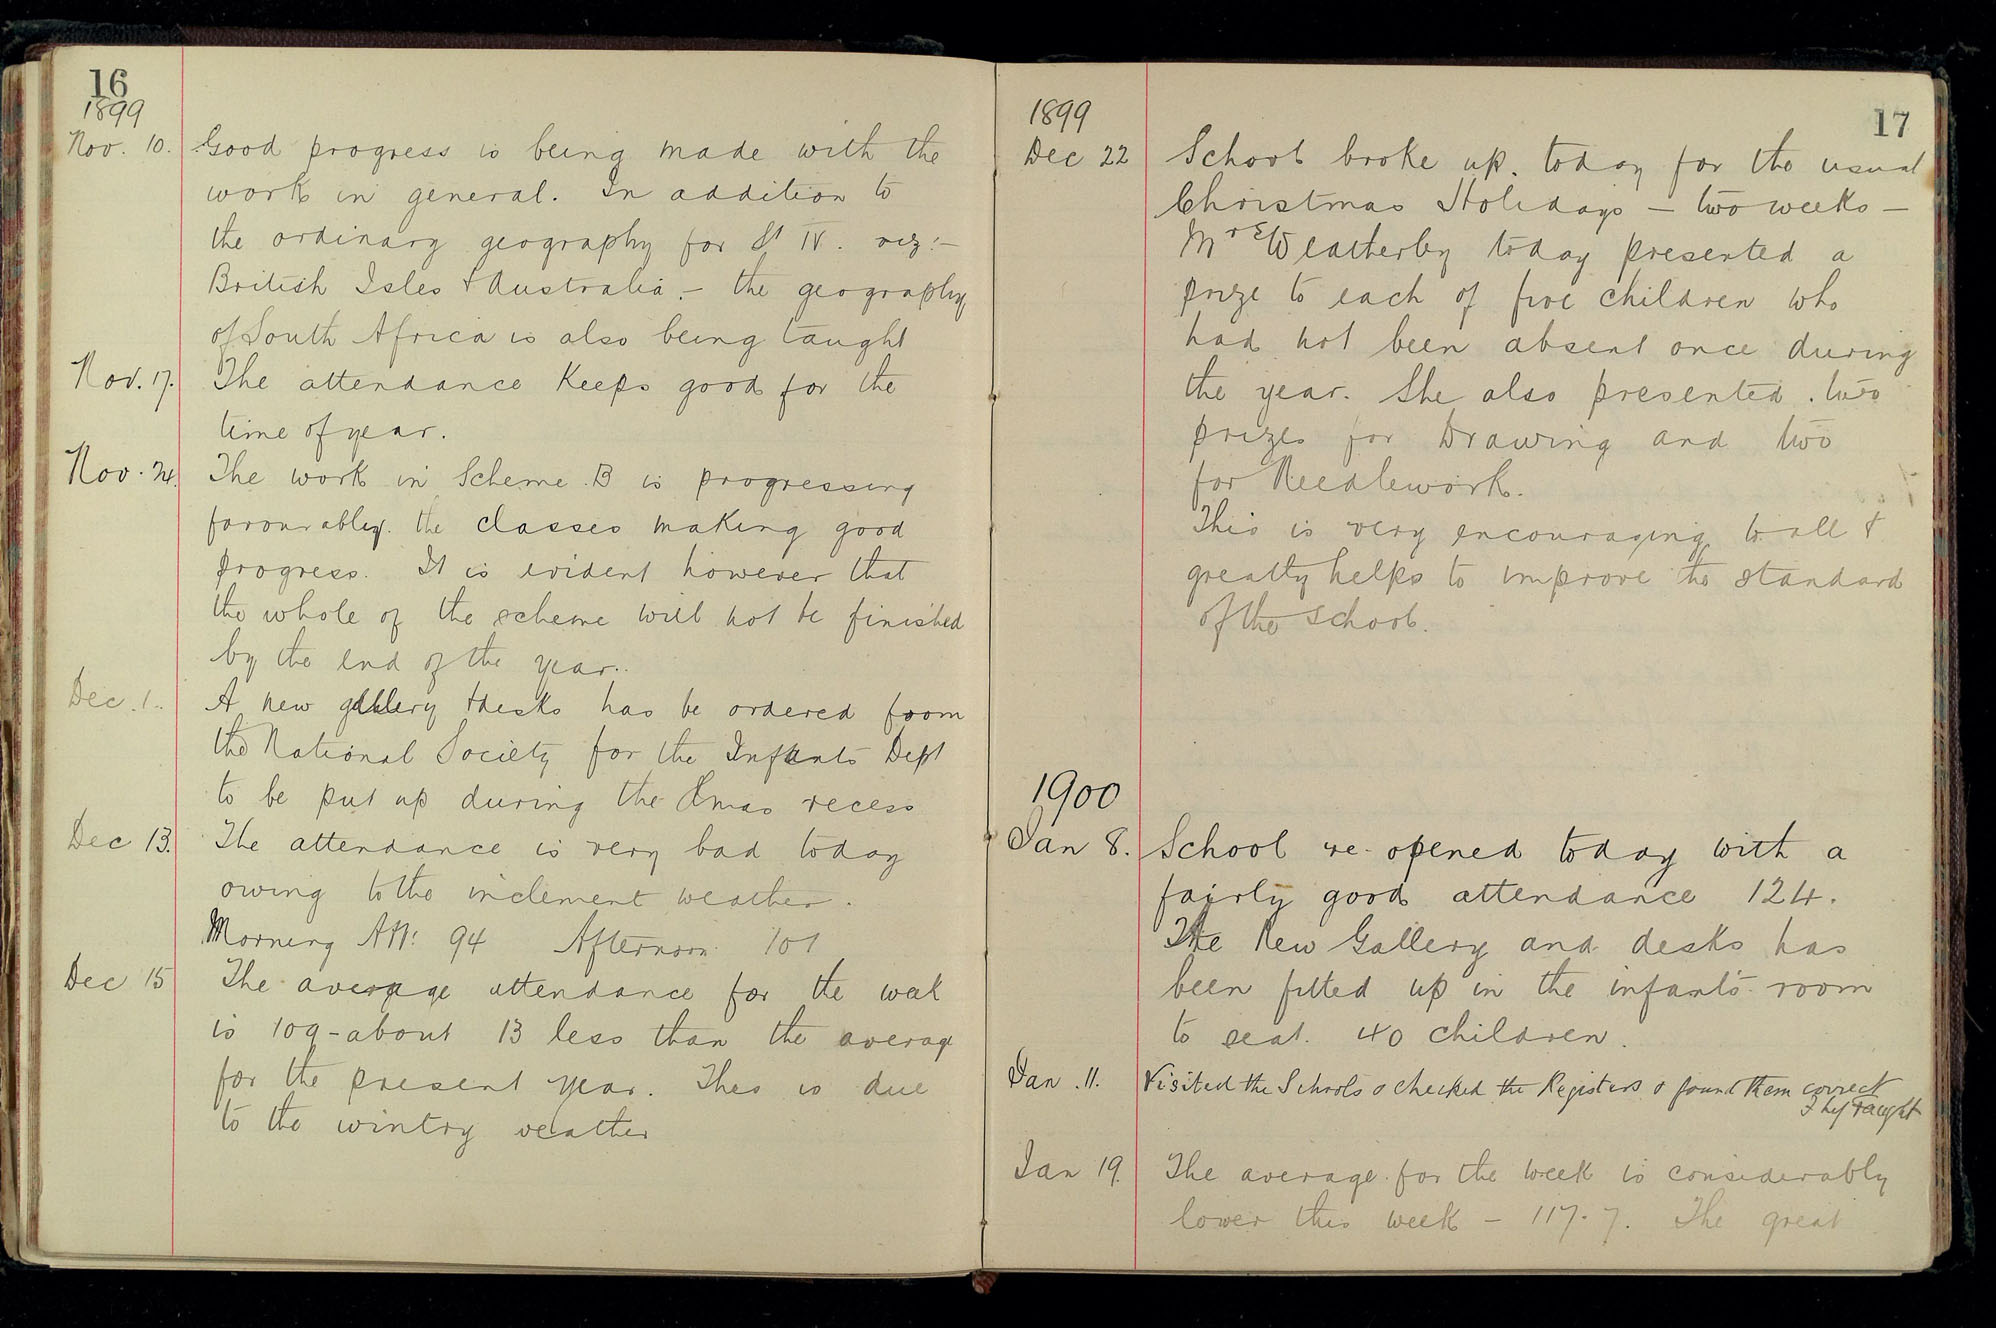 16
1899
Nov. 10. Good progress is being made with the
work in general. In addition to
the ordinary geography for St IV. viz:-
British Isles & Australia - the geography
of South Africa is also being taught
Nov. 17. The attendance keeps good for the
time of year.
Nov. 24. The work in Scheme B is progressing
favourably. the classes making good
progress. It is evident however that
the whole of the scheme will not be finished
by the end of the year.
Dec. 1. A new gallery & desks has be ordered from
the National Society for the Infants Dept
to be put up during the Xmas recess
Dec 13. The attendance is very bad today
owing to the inclement weather.
Morning Att: 94 Afternoon 101
Dec 15 The average attendance for the week
is 109 - about 13 less than the average
for the present year. This is due
to the wintry weather
17
1899
Dec 22 School broke up. today for the usual
Christmas Holidays - two weeks -
Mrs Weatherby today presented a
prize to each of five children who
had not been absent once during
the year. She also presented. two
prizes for Drawing and two
for Needlework.
This is very encouraging to all &
greatly helps to improve the standard
of the school.
1900
Jan 8. School re-opened today with a
fairly good attendance 124.
The New Gallery and desks has
been fitted up in the infants room
to seat. 40 children.
Jan. 11. Visited the Schools & checked the Registers & found them correct
Jan 19. The average for the week is considerably
lower this week - 117.7. The great